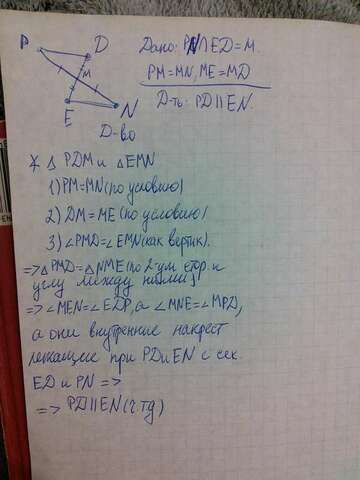 P
D
M
E
N
Дано: PN∩ED=M.
PM=MN, ME=MD
Д-ть: PD||EN.
Д-во
∆ PDM и ∆EMN
1) PM=MN(по условию)
2) DM=ME(по условию)
3) ∠PMD=∠EMN(как вертик).
=>∆PMD=∆NME(по 2-ум стор. и
углу между ними)
=> ∠MEN=∠EDP, а ∠MNE=∠MPD,
а они внутренние накрест
лежащие при PD и EN с сек.
ED и PN =>
=> PD||EN(ч.тд)
EN